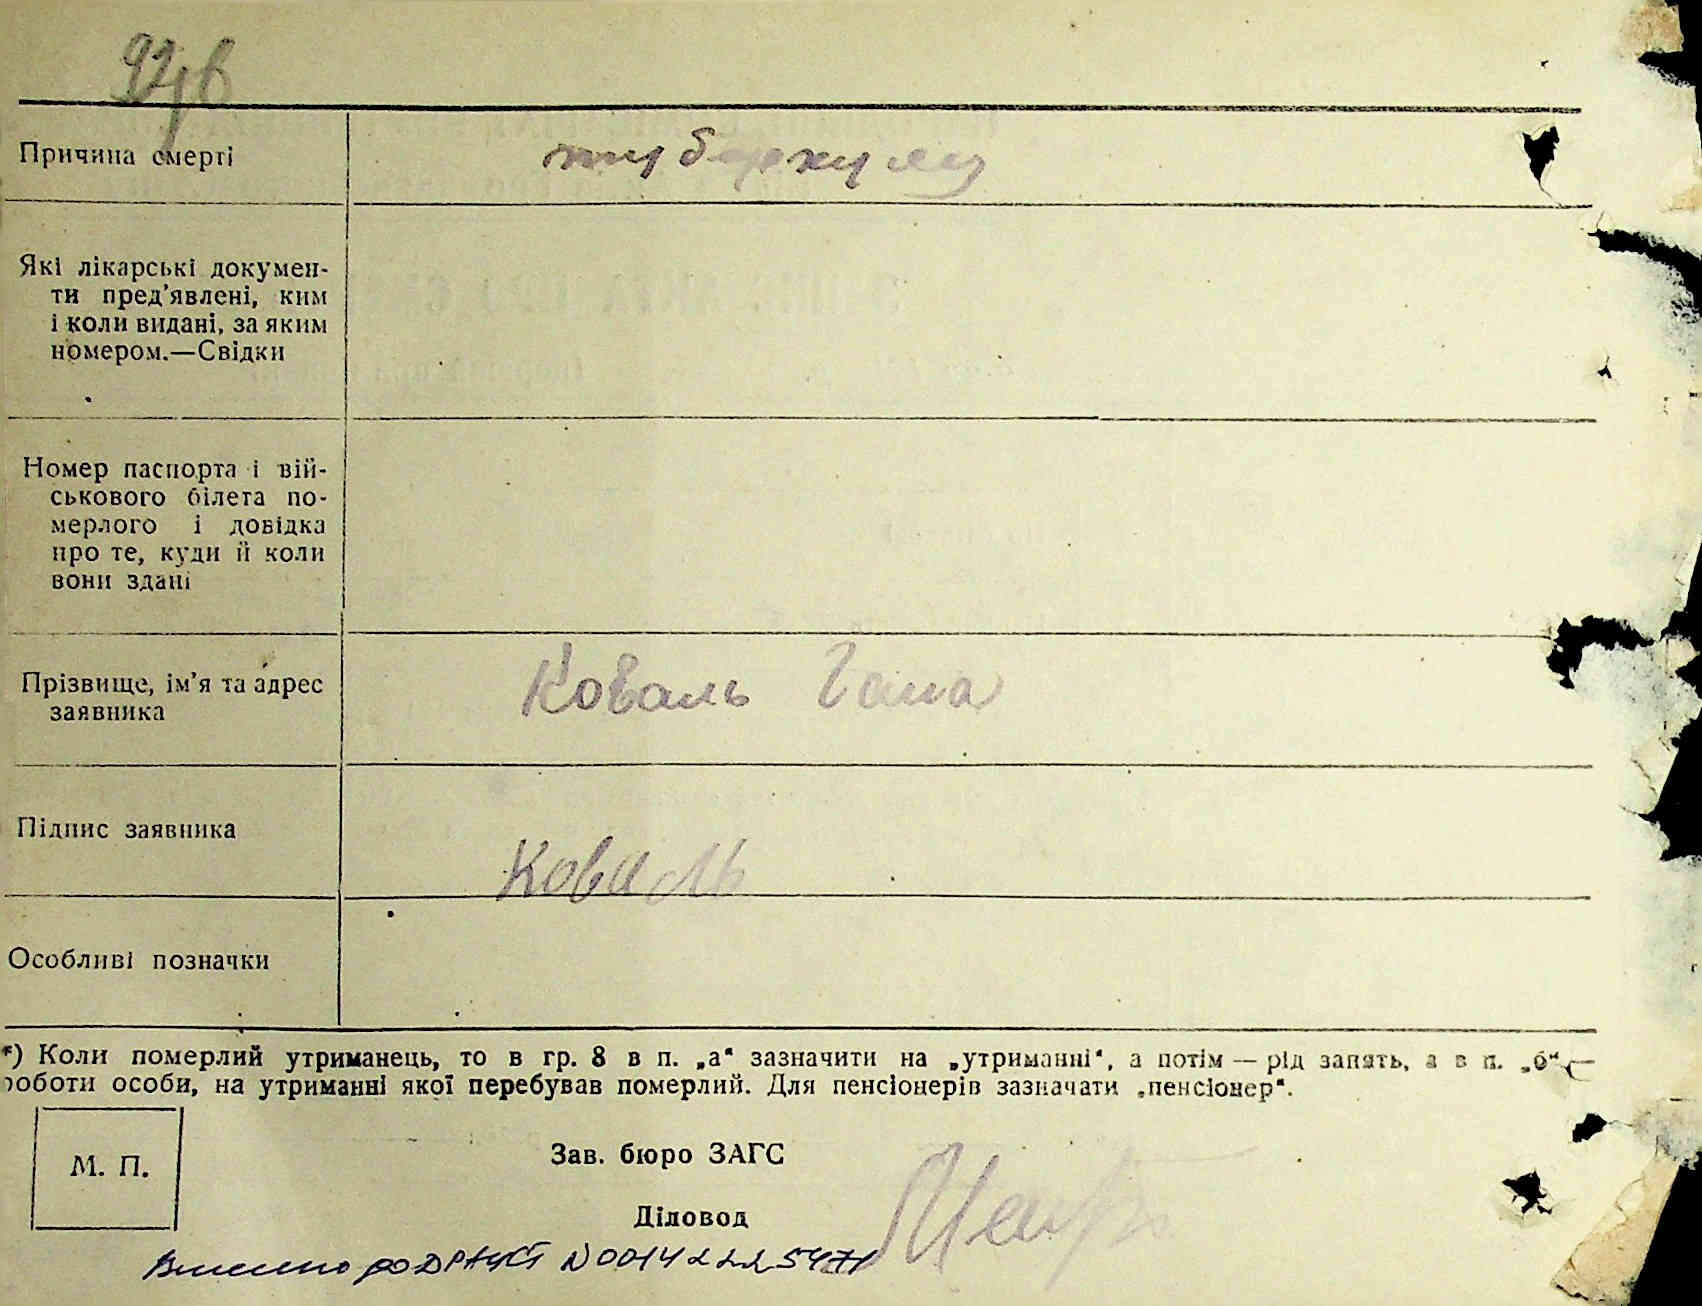 Причина смерті
туберкульоз
Які лікарські докумен-
ти пред'явлені, ким
і коли видані, за яким
номером.—Свідки
Номер паспорта і вій-
ськового білета по-
мерлого і довідка
про те, куди й коли
вони здані
Прізвище, ім'я та адрес
заявника
Коваль Гана
Підпис заявника
Коваль
Особливі позначки
*) Коли померлий утриманець, то в гр. 8 в п. „а“ зазначити на „утриманні“, а потім — рід занять, а в п. „б“ —
роботи особи, на утриманні якої перебував померлий. Для пенсіонерів зазначати „пенсіонер“.
М. П.
Зав. бюро ЗАГС
Діловод
Внесено до ДРАЦСГ N 00142225471